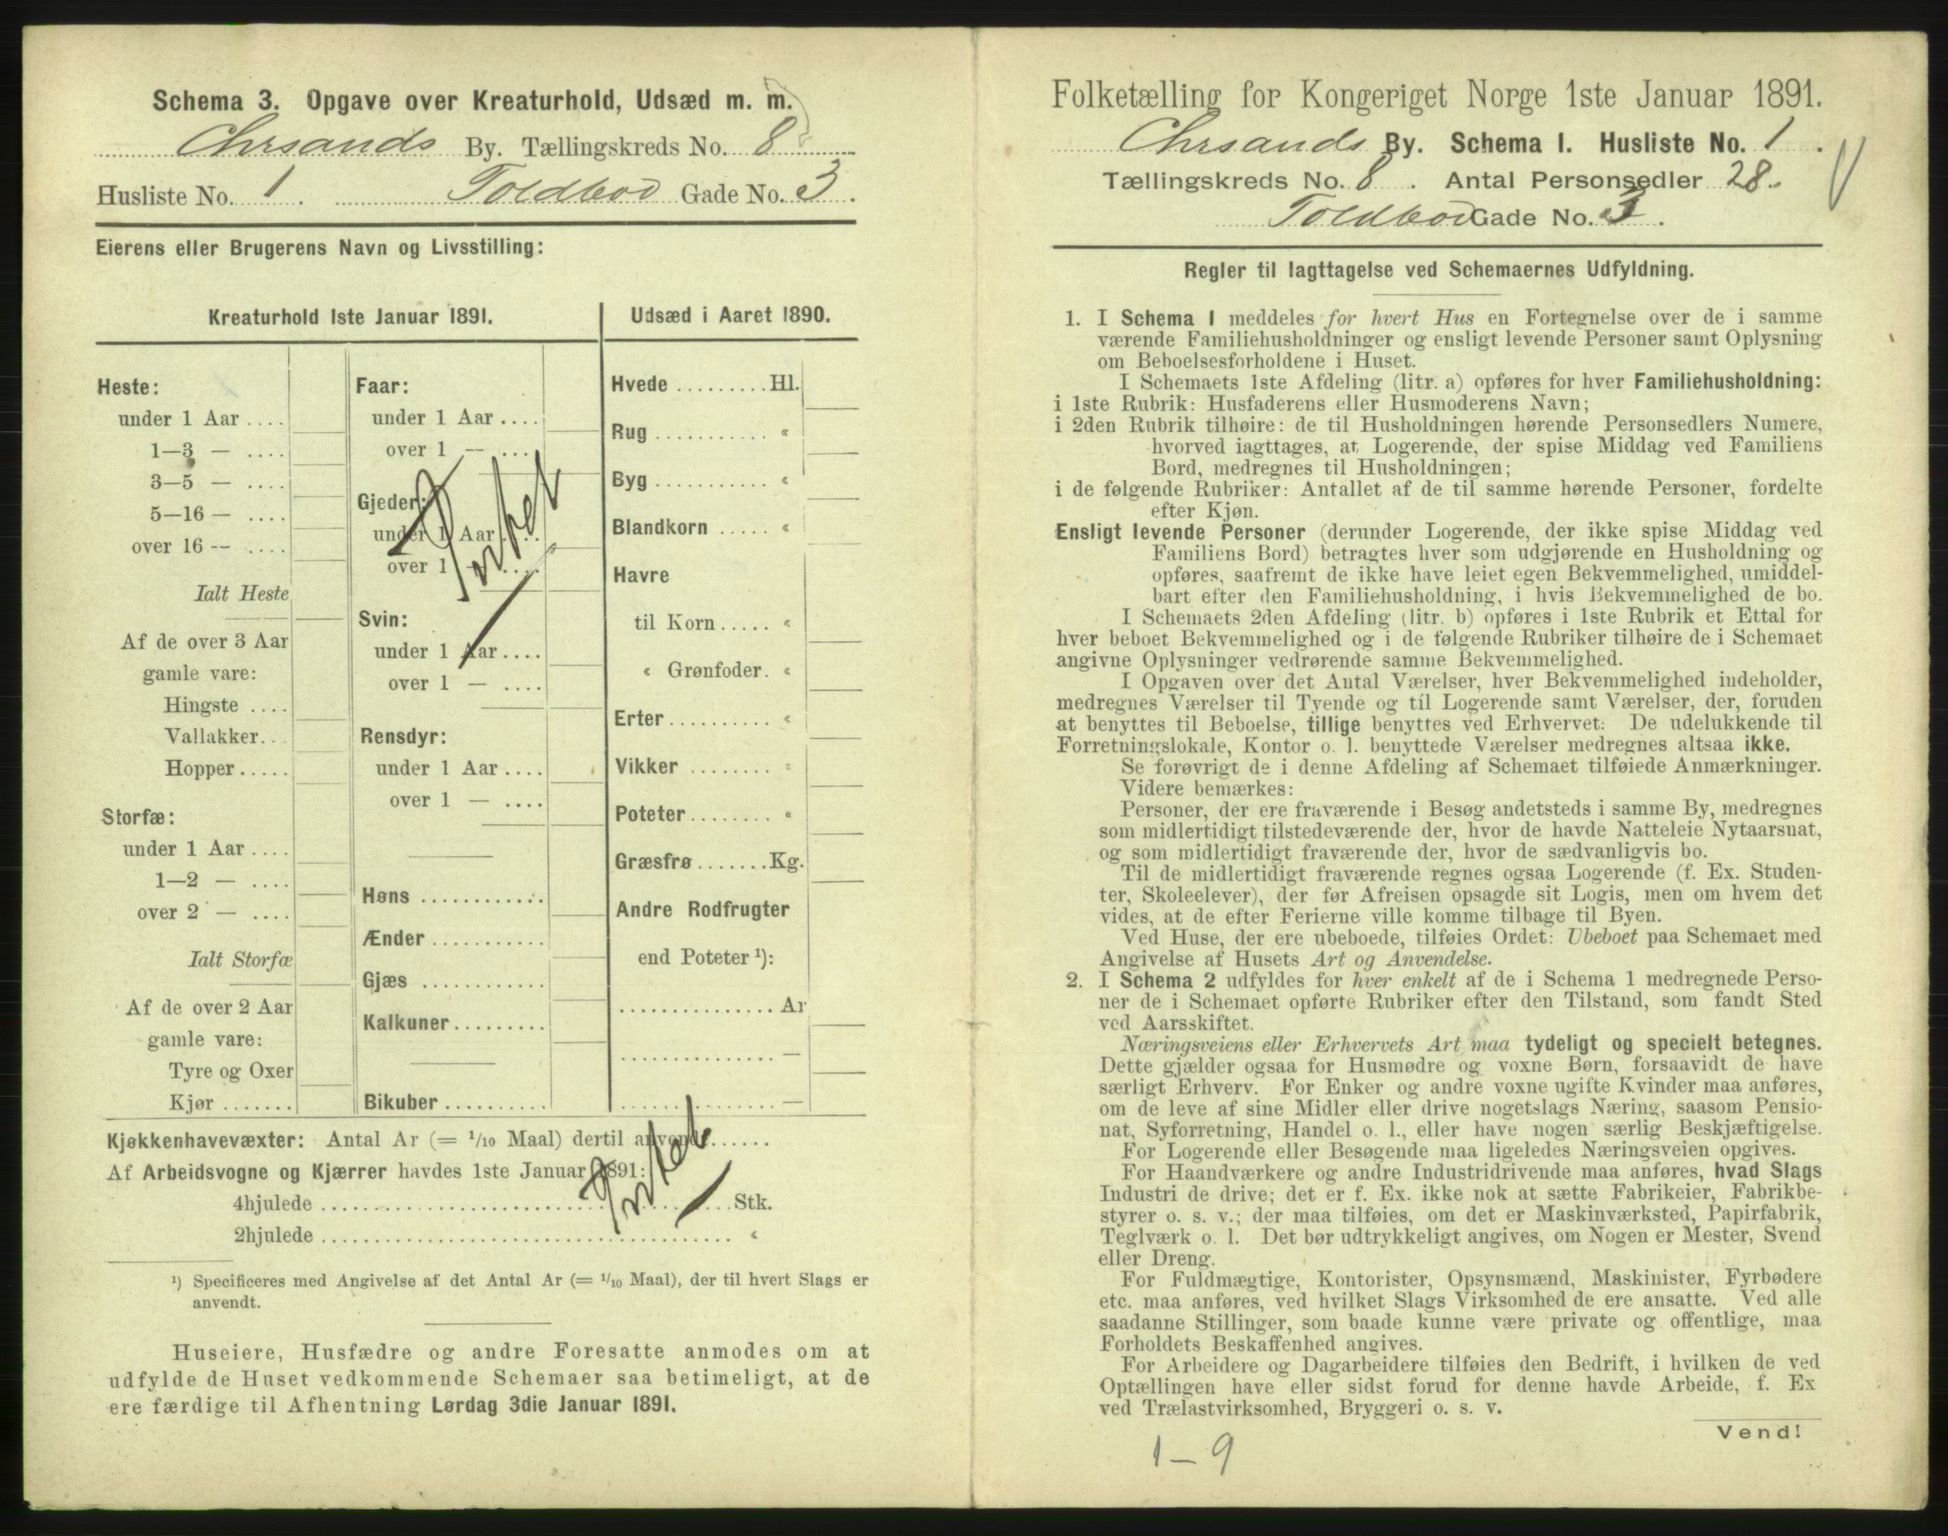 Schema 3. Opgave over Kreaturhold, Udsæd m. m.
Chrsands By. Tællingskreds No. 8
Husliste No. 1. Toldbod Gade No. 3.
Eierens eller Brugerens Navn og Livsstilling:
Kreaturhold 1ste Januar 1891.
Heste:
under 1 Aar ....
1—3 — ....
3—5 — ....
5—16 — ....
over 16 -- ....
Ialt Heste
Af de over 3 Aar
gamle vare:
Hingste ....
Vallakker...
Hopper.....
Storfæ:
under 1 Aar ....
1—2 — ....
over 2 — ....
Ialt Storfæ
Af de over 2 Aar
gamle vare:
Tyre og Oxer
Kjør .......
Faar:
under 1 Aar ....
over 1 — ....
Gjeder:
under 1 Aar ....
over 1 — ....
Intet
Svin:
under 1 Aar ....
over 1 — ....
Rensdyr:
under 1 Aar ....
over 1 — ....
Høns ............
Ænder ...........
Gjæs ............
Kalkuner.........
Bikuber ..........
Udsæd i Aaret 1890.
Hvede .........Hl.
Rug ............ «
Byg ............ «
Blandkorn ..... «
Havre
til Korn ..... «
« Grønfoder. «
Erter .......... «
Vikker ........ «
Poteter ........ «
Græsfrø .......Kg.
Andre Rodfrugter
end Poteter ¹):
............... Ar
............... —
............... —
Kjøkkenhavevæxter: Antal Ar (= 1/10 Maal) dertil anvendt ......
Af Arbeidsvogne og Kjærrer havdes 1ste Januar 1891:
Intet
4hjulede ........................................ Stk.
2hjulede ........................................ «
¹) Specificeres med Angivelse af det Antal Ar (= 1/10 Maal), der til hvert Slags er
anvendt.
Huseiere, Husfædre og andre Foresatte anmodes om at
udfylde de Huset vedkommende Schemaer saa betimeligt, at de
ere færdige til Afhentning Lørdag 3die Januar 1891.
Folketælling for Kongeriget Norge 1ste Januar 1891.
Chrsands By. Schema I. Husliste No. 1.
Tællingskreds No. 8. Antal Personsedler 28.
Toldbod Gade No. 3.
Regler til Iagttagelse ved Schemaernes Udfyldning.
1. I Schema I meddeles for hvert Hus en Fortegnelse over de i samme
værende Familiehusholdninger og ensligt levende Personer samt Oplysning
om Beboelsesforholdene i Huset.
I Schemaets 1ste Afdeling (litr. a) opføres for hver Familiehusholdning:
i 1ste Rubrik: Husfaderens eller Husmoderens Navn;
i 2den Rubrik tilhøire: de til Husholdningen hørende Personsedlers Numere,
hvorved iagttages, at Logerende, der spise Middag ved Familiens
Bord, medregnes til Husholdningen;
i de følgende Rubriker: Antallet af de til samme hørende Personer, fordelte
efter Kjøn.
Ensligt levende Personer (derunder Logerende, der ikke spise Middag ved
Familiens Bord) betragtes hver som udgjørende en Husholdning og
opføres, saafremt de ikke have leiet egen Bekvemmelighed, umiddel-
bart efter den Familiehusholdning, i hvis Bekvemmelighed de bo.
I Schemaets 2den Afdeling (litr. b) opføres i 1ste Rubrik et Ettal for
hver beboet Bekvemmelighed og i de følgende Rubriker tilhøire de i Schemaet
angivne Oplysninger vedrørende samme Bekvemmelighed.
I Opgaven over det Antal Værelser, hver Bekvemmelighed indeholder,
medregnes Værelser til Tyende og til Logerende samt Værelser, der, foruden
at benyttes til Beboelse, tillige benyttes ved Erhvervet: De udelukkende til
Forretningslokale, Kontor o. l. benyttede Værelser medregnes altsaa ikke.
Se forøvrigt de i denne Afdeling af Schemaet tilføiede Anmærkninger.
Videre bemærkes:
Personer, der ere fraværende i Besøg andetsteds i samme By, medregnes
som midlertidigt tilstedeværende der, hvor de havde Natteleie Nytaarsnat,
og som midlertidigt fraværende der, hvor de sædvanligvis bo.
Til de midlertidigt fraværende regnes ogsaa Logerende (f. Ex. Studen-
ter, Skoleelever), der før Afreisen opsagde sit Logis, men om hvem det
vides, at de efter Ferierne ville komme tilbage til Byen.
Ved Huse, der ere ubeboede, tilføies Ordet: Ubeboet paa Schemaet med
Angivelse af Husets Art og Anvendelse.
2. I Schema 2 udfyldes for hver enkelt af de i Schema 1 medregnede Perso-
ner de i Schemaet opførte Rubriker efter den Tilstand, som fandt Sted
ved Aarsskiftet.
Næringsveiens eller Erhvervets Art maa tydeligt og specielt betegnes.
Dette gjælder ogsaa for Husmødre og voxne Børn, forsaavidt de have
særligt Erhverv. For Enker og andre voxne ugifte Kvinder maa anføres,
om de leve af sine Midler eller drive nogetslags Næring, saasom Pensio-
nat, Syforretning, Handel o. l., eller have nogen særlig Beskjæftigelse.
For Logerende eller Besøgende maa ligeledes Næringsveien opgives.
For Haandværkere og andre Industridrivende maa anføres, hvad Slags
Industri de drive; det er f. Ex. ikke nok at sætte Fabrikeier, Fabrikbe-
styrer o. s. v.; der maa tilføies, om det er Maskinværksted, Papirfabrik,
Teglværk o. l. Det bør udtrykkeligt angives, om Nogen er Mester, Svend
eller Dreng.
For Fuldmægtige, Kontorister, Opsynsmænd, Maskinister, Fyrbødere
etc. maa anføres, ved hvilket Slags Virksomhed de ere ansatte. Ved alle
saadanne Stillinger, som baade kunne være private og offentlige, maa
Forholdets Beskaffenhed angives.
For Arbeidere og Dagarbeidere tilføies den Bedrift, i hvilken de ved
Optællingen have eller sidst forud for denne havde Arbeide, f. Ex
ved Trælastvirksomhed, Bryggeri o. s. v.
Vend!
1–9